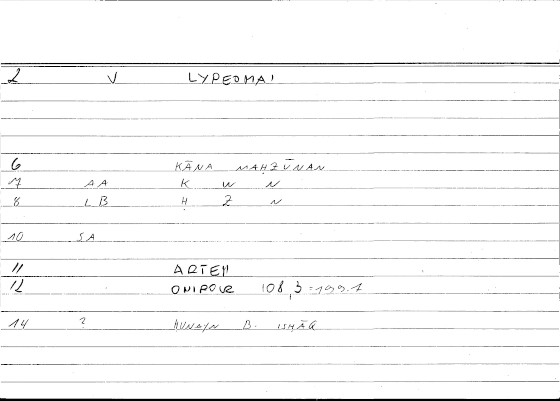 2 V LYPEOMAI
6 KĀNA MAḤZŪNAN
7 AA K W N
8 LB Ḥ Z N
10 SA
11 ARTEM
12 ONIPOCR 108,3 = 199.1
14 ? HUNAYN B. ISHĀQ